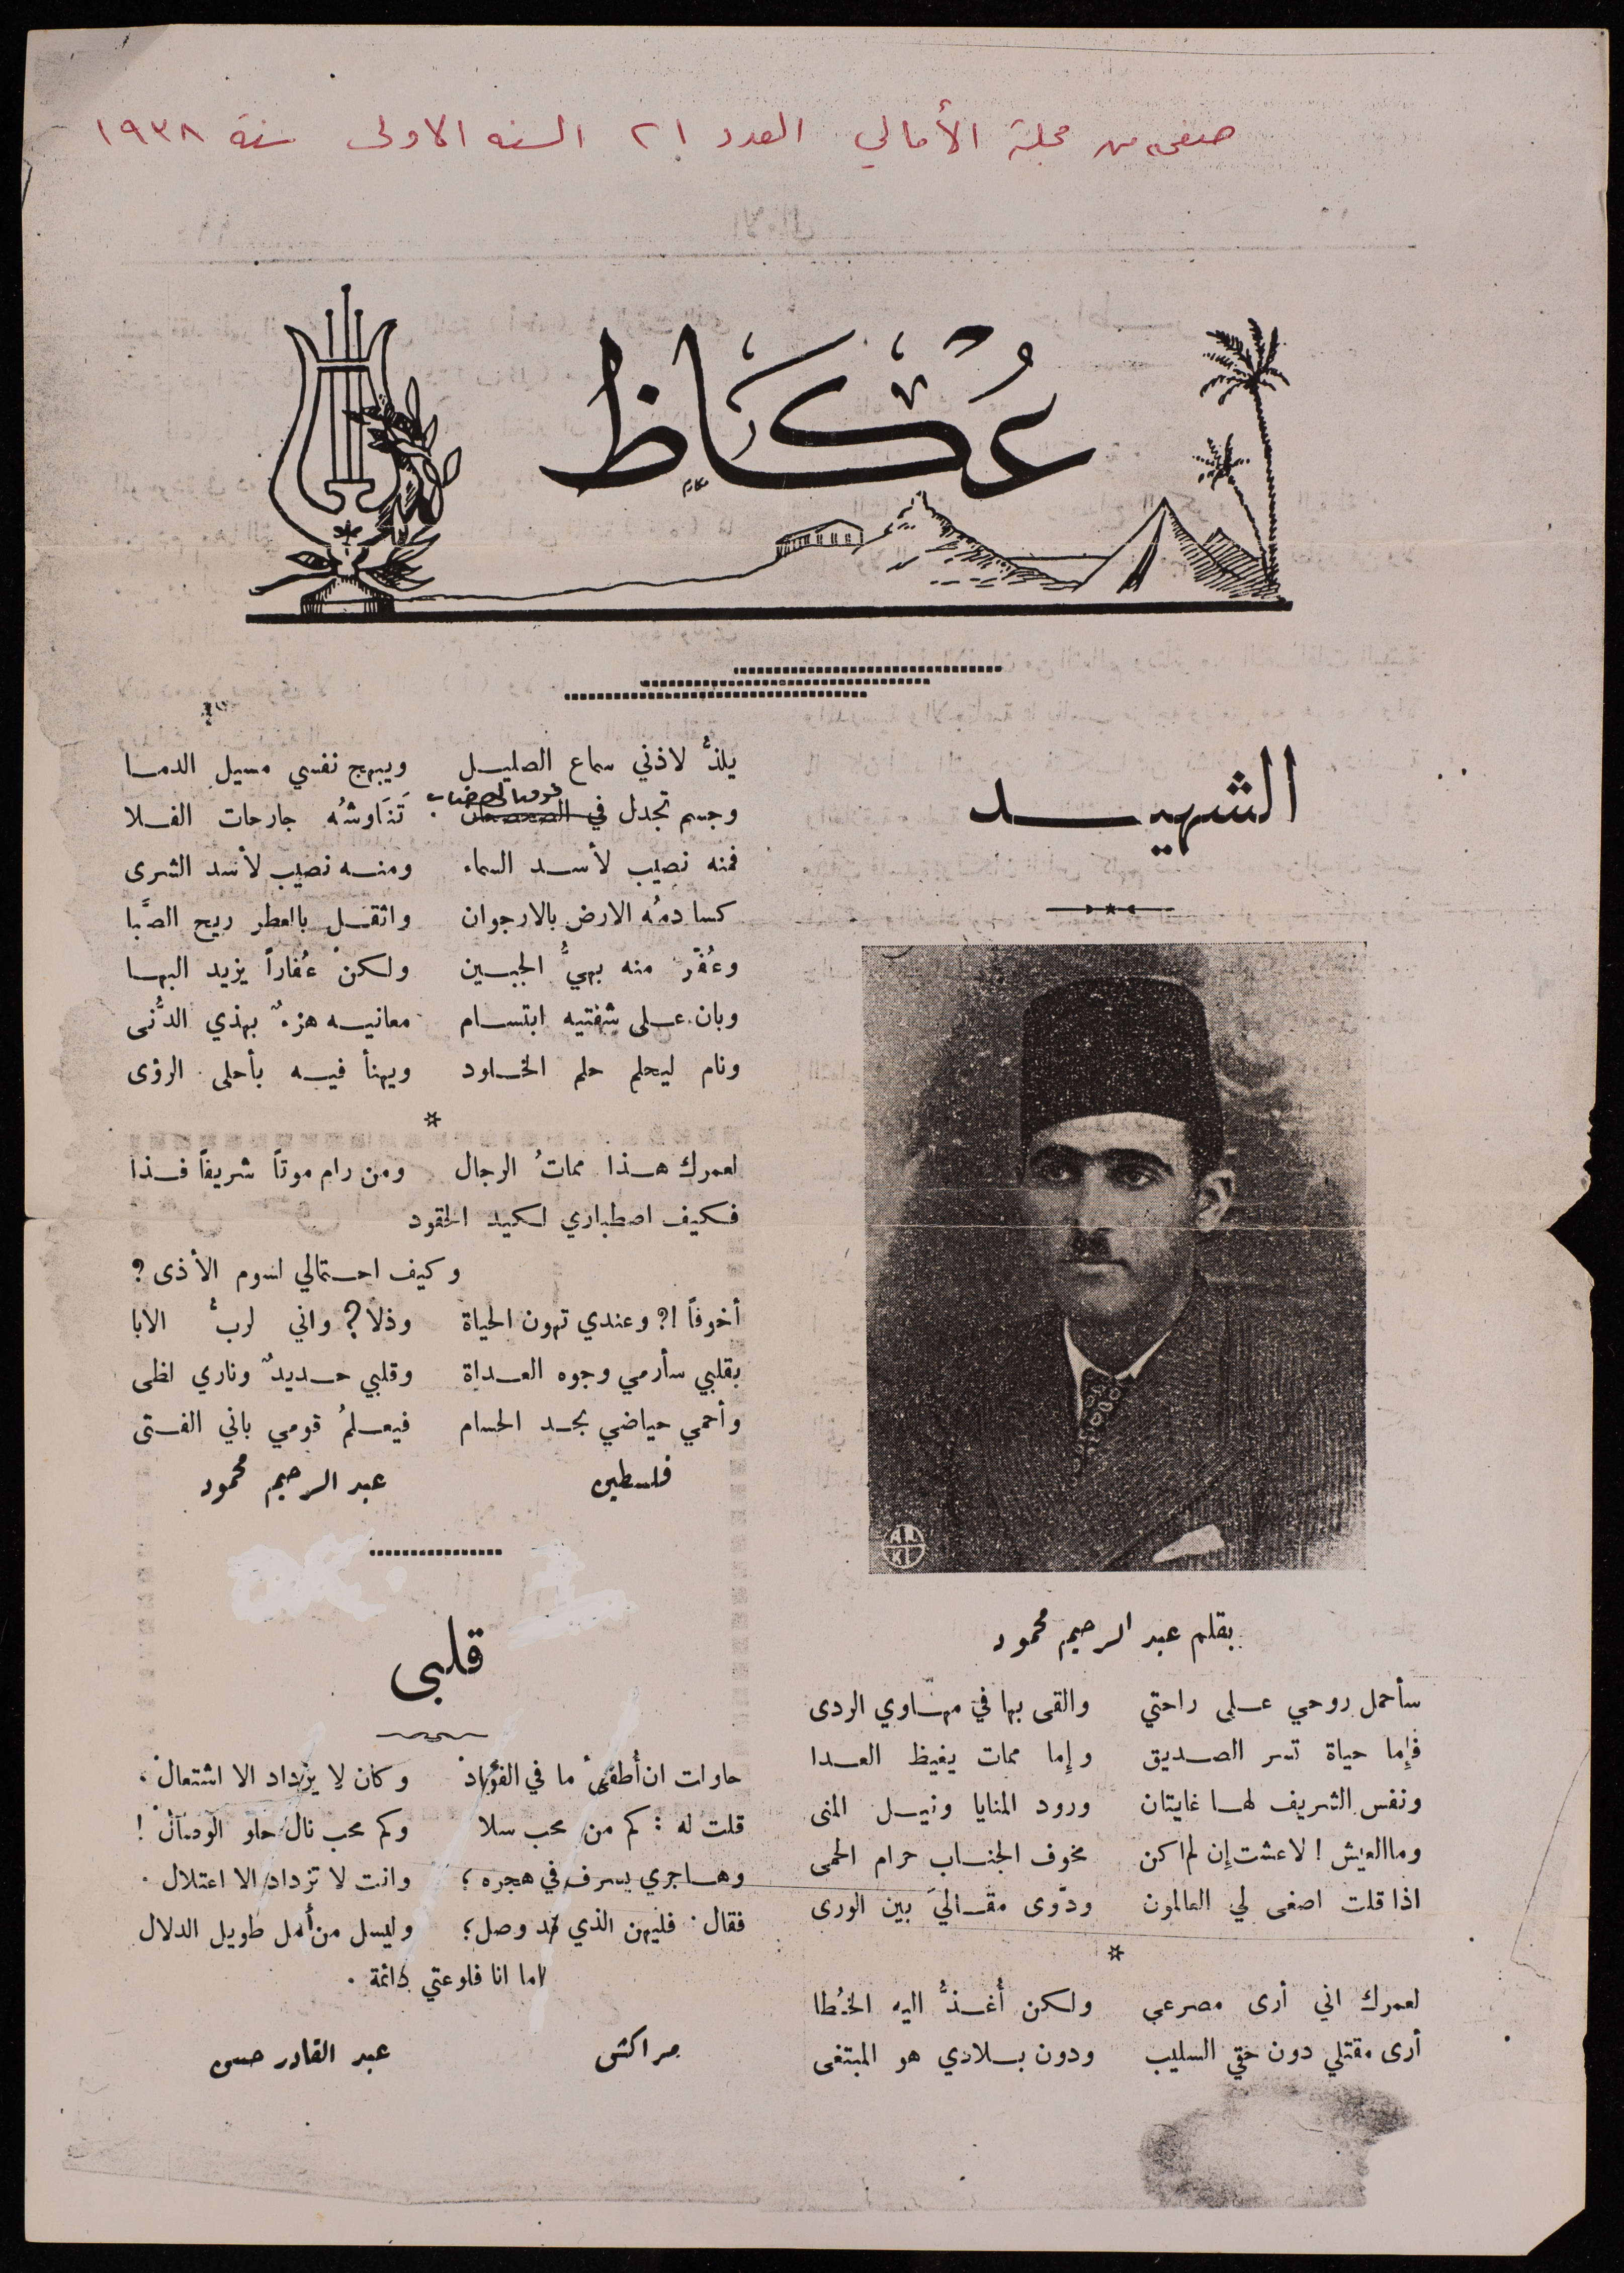 صفحه من مجلة الأمالي العدد ٢١ السنه الاولى سنة ١٩٣٨
عُكَاظ
الشهيد
بقلم عبد الرحيم محمود
سأحمل روحي على راحتي والقى بها في مهاوي الردى
فإما حياة تسر الصديق وإما ممات يغيظ العدا
ونفس الشريف لها غايتان ورود المنايا ونيل المنى
وما العيش ! لاعشت إن لم اكن مخوف الجناب حرام الحمى
اذا قلت اصغى لي العالمون ودوّى مقاليَ بين الورى
*
لعمرك اني أرى مصرعي ولكن أغذُّ اليه الخُطا
أرى مقتلي دون حقي السليب ودون بلادي هو المبتغى
يلذُّ لاذني سماع الصليل ويبهج نفسي مسيل الدما
فوق الهضاب
وجسم تجدل في الصحصحان تَنَاوشُه جارحات الفلا
فمنه نصيب لأسد السماء ومنه نصيب لأسد الشرى
كسا دمُه الارض بالارجوان واثقل بالعطر ريح الصَّبا
وعُفّر منه بهيُّ الجبين ولكن عُفاراً يزيد البها
وبان على شفتيه ابتسام معانيه هزءٌ بهذي الدُّنى
ونام ليحلم حلم الخلود ويهنأ فيه بأحلى الرؤى
*
لعمرك هذا مماتُ الرجال ومن رام موتاً شريفاً فذا
فكيف اصطباري لكيد الحقود
وكيف احتمالي لسوم الأذى ؟
أخوفاً !؟ وعندي تهون الحياة وذلا؟ واني لربُّ الابا
بقلبي سأرمي وجوه العداة وقلبي حديدٌ وناري لظى
وأحمي حياضي بحد الحسام فيعلمُ قومي باني الفتى
فلسطين عبد الرحيم محمود
قلبي
حاولت ان أطفئ ما في الفؤاد وكان لا يزداد الا اشتعال .
قلت له : كم من محب سلا وكم محب نال حلو الوصال !
وهاجري يسرف في هجره ؛ وانت لا تزداد الا اعتلال .
فقال : فليهن الذي قد وصل ؛ وليسل من أمل طويل الدلال
اما انا فلوعتي دائمة .
مراكش عبد القادر حسن